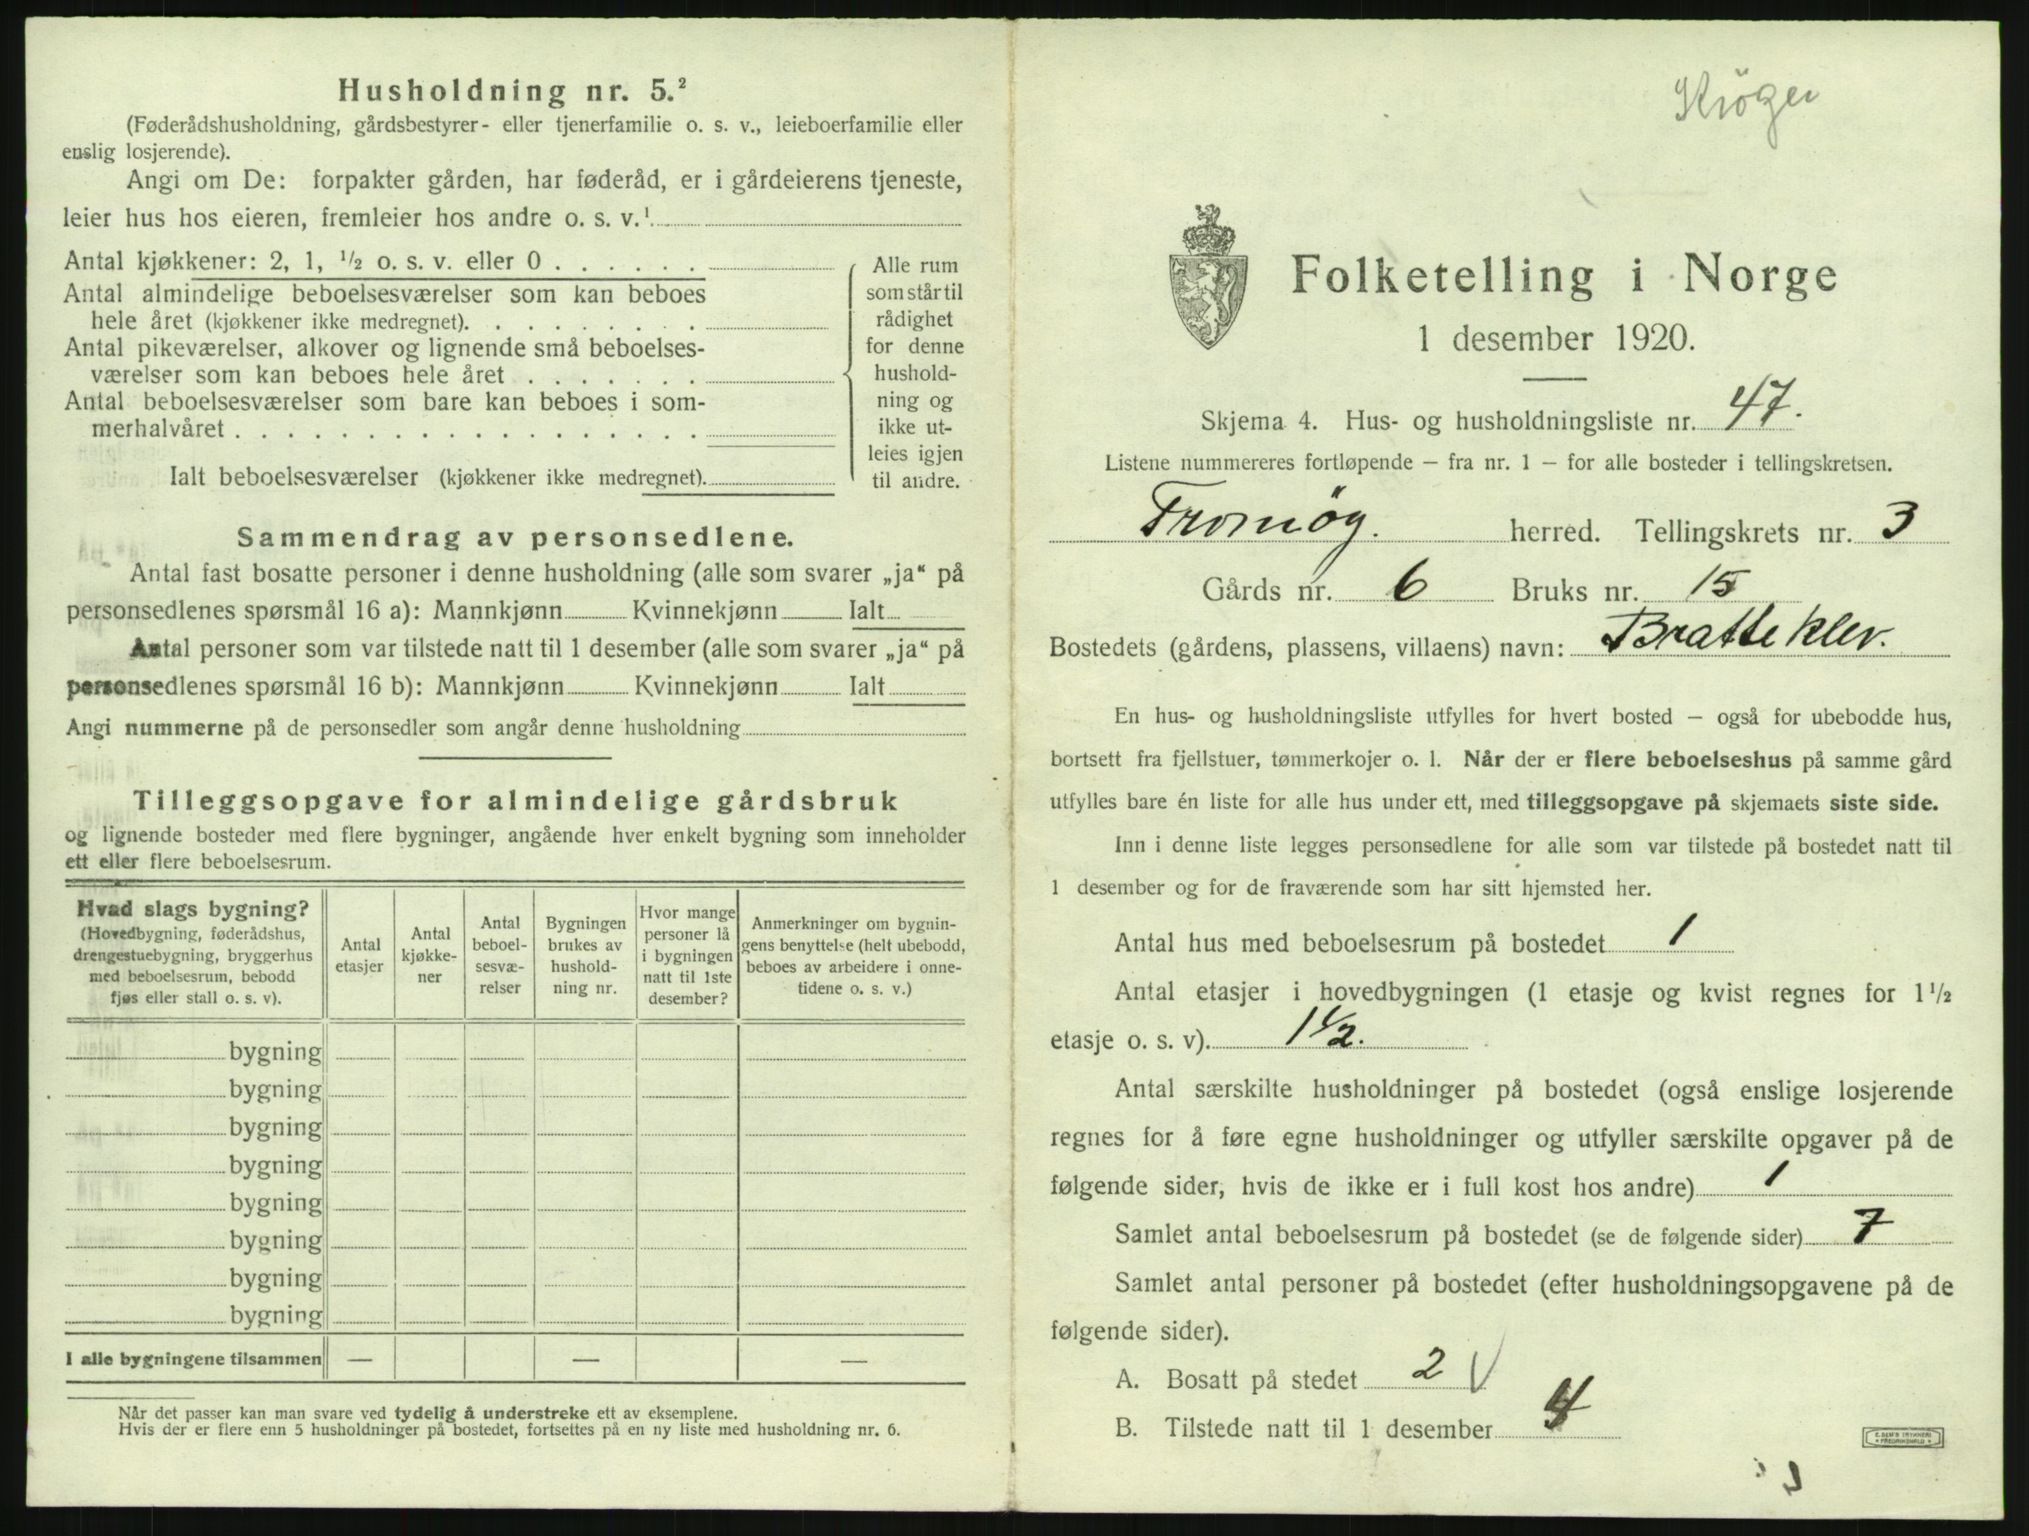 Husholdning nr. 5.²
(Føderådshusholdning, gårdsbestyrer- eller tjenerfamilie o. s. v., leieboerfamilie eller
enslig losjerende).
Angi om De: forpakter gården, har føderåd, er i gårdeierens tjeneste,
leier hus hos eieren, fremleier hos andre o. s. v.¹
Antal kjøkkener: 2, 1, ½ o. s. v. eller 0 . . . . . .
Antal almindelige beboelsesværelser som kan beboes
hele året (kjøkkener ikke medregnet). . . . . . . . .
Antal pikeværelser, alkover og lignende små beboelses-
værelser som kan beboes hele året . . . . . . .
Antal beboelsesværelser som bare kan beboes i som-
merhalvåret . . . . . . . . . . . . . . . . . .
Ialt beboelsesværelser (kjøkkener ikke medregnet).
Alle rum
som står til
rådighet
for denne
hushold-
ning og
ikke ut-
leies igjen
til andre.
Sammendrag av personsedlene.
Antal fast bosatte personer i denne husholdning (alle som svarer „ja“ på
personsedlenes spørsmål 16 a): Mannkjønn Kvinnekjønn Ialt
Antal personer som var tilstede natt til 1 desember (alle som svarer „ja“ på
personsedlenes spørsmål 16 b): Mannkjønn Kvinnekjønn Ialt
Angi nummerne på de personsedler som angår denne husholdning
Tilleggsopgave for almindelige gårdsbruk
og lignende bosteder med flere bygninger, angående hver enkelt bygning som inneholder
ett eller flere beboelsesrum.
Hvad slags bygning?
(Hovedbygning, føderådshus,
drengestuebygning, bryggerhus
med beboelsesrum, bebodd
fjøs eller stall o. s. v).
Antal
etasjer
Antal
kjøkke-
ner
Antal
beboel-
sesvæ-
relser
Bygningen
brukes av
hushold-
ning nr.
Hvor mange
personer lå
i bygningen
natt til 1ste
desember?
Anmerkninger om bygnin-
gens benyttelse (helt ubebodd,
beboes av arbeidere i onne-
tidene o. s. v.)
bygning
bygning
bygning
bygning
bygning
bygning
bygning
bygning
I alle bygningene tilsammen — — —
Når det passer kan man svare ved tydelig å understreke ett av eksemplene.
Hvis der er flere enn 5 husholdninger på bostedet, fortsettes på en ny liste med husholdning nr. 6.
Folketelling i Norge
1 desember 1920.
Skjema 4. Hus- og husholdningsliste nr. 47.
Listene nummereres fortløpende – fra nr. 1 – for alle bosteder i tellingskretsen.
Tromøy. herred. Tellingskrets nr. 3
Gårds nr. 6 Bruks nr. 15
Bostedets (gårdens, plassens, villaens) navn: Bratteklev.
En hus- og husholdningsliste utfylles for hvert bosted – også for ubebodde hus,
bortsett fra fjellstuer, tømmerkojer o. l. Når der er flere beboelseshus på samme gård
utfylles bare én liste for alle hus under ett, med tilleggsopgave på skjemaets siste side.
Inn i denne liste legges personsedlene for alle som var tilstede på bostedet natt til
1 desember og for de fraværende som har sitt hjemsted her.
Antal hus med beboelsesrum på bostedet 1
Antal etasjer i hovedbygningen (1 etasje og kvist regnes for 1½
etasje o. s. v). 1½.
Antal særskilte husholdninger på bostedet (også enslige losjerende
regnes for å føre egne husholdninger og utfyller særskilte opgaver på de
følgende sider, hvis de ikke er i full kost hos andre) 1
Samlet antal beboelsesrum på bostedet (se de følgende sider) 7
Samlet antal personer på bostedet (efter husholdningsopgavene på de
følgende sider).
A. Bosatt på stedet 2 V
B. Tilstede natt til 1 desember 4